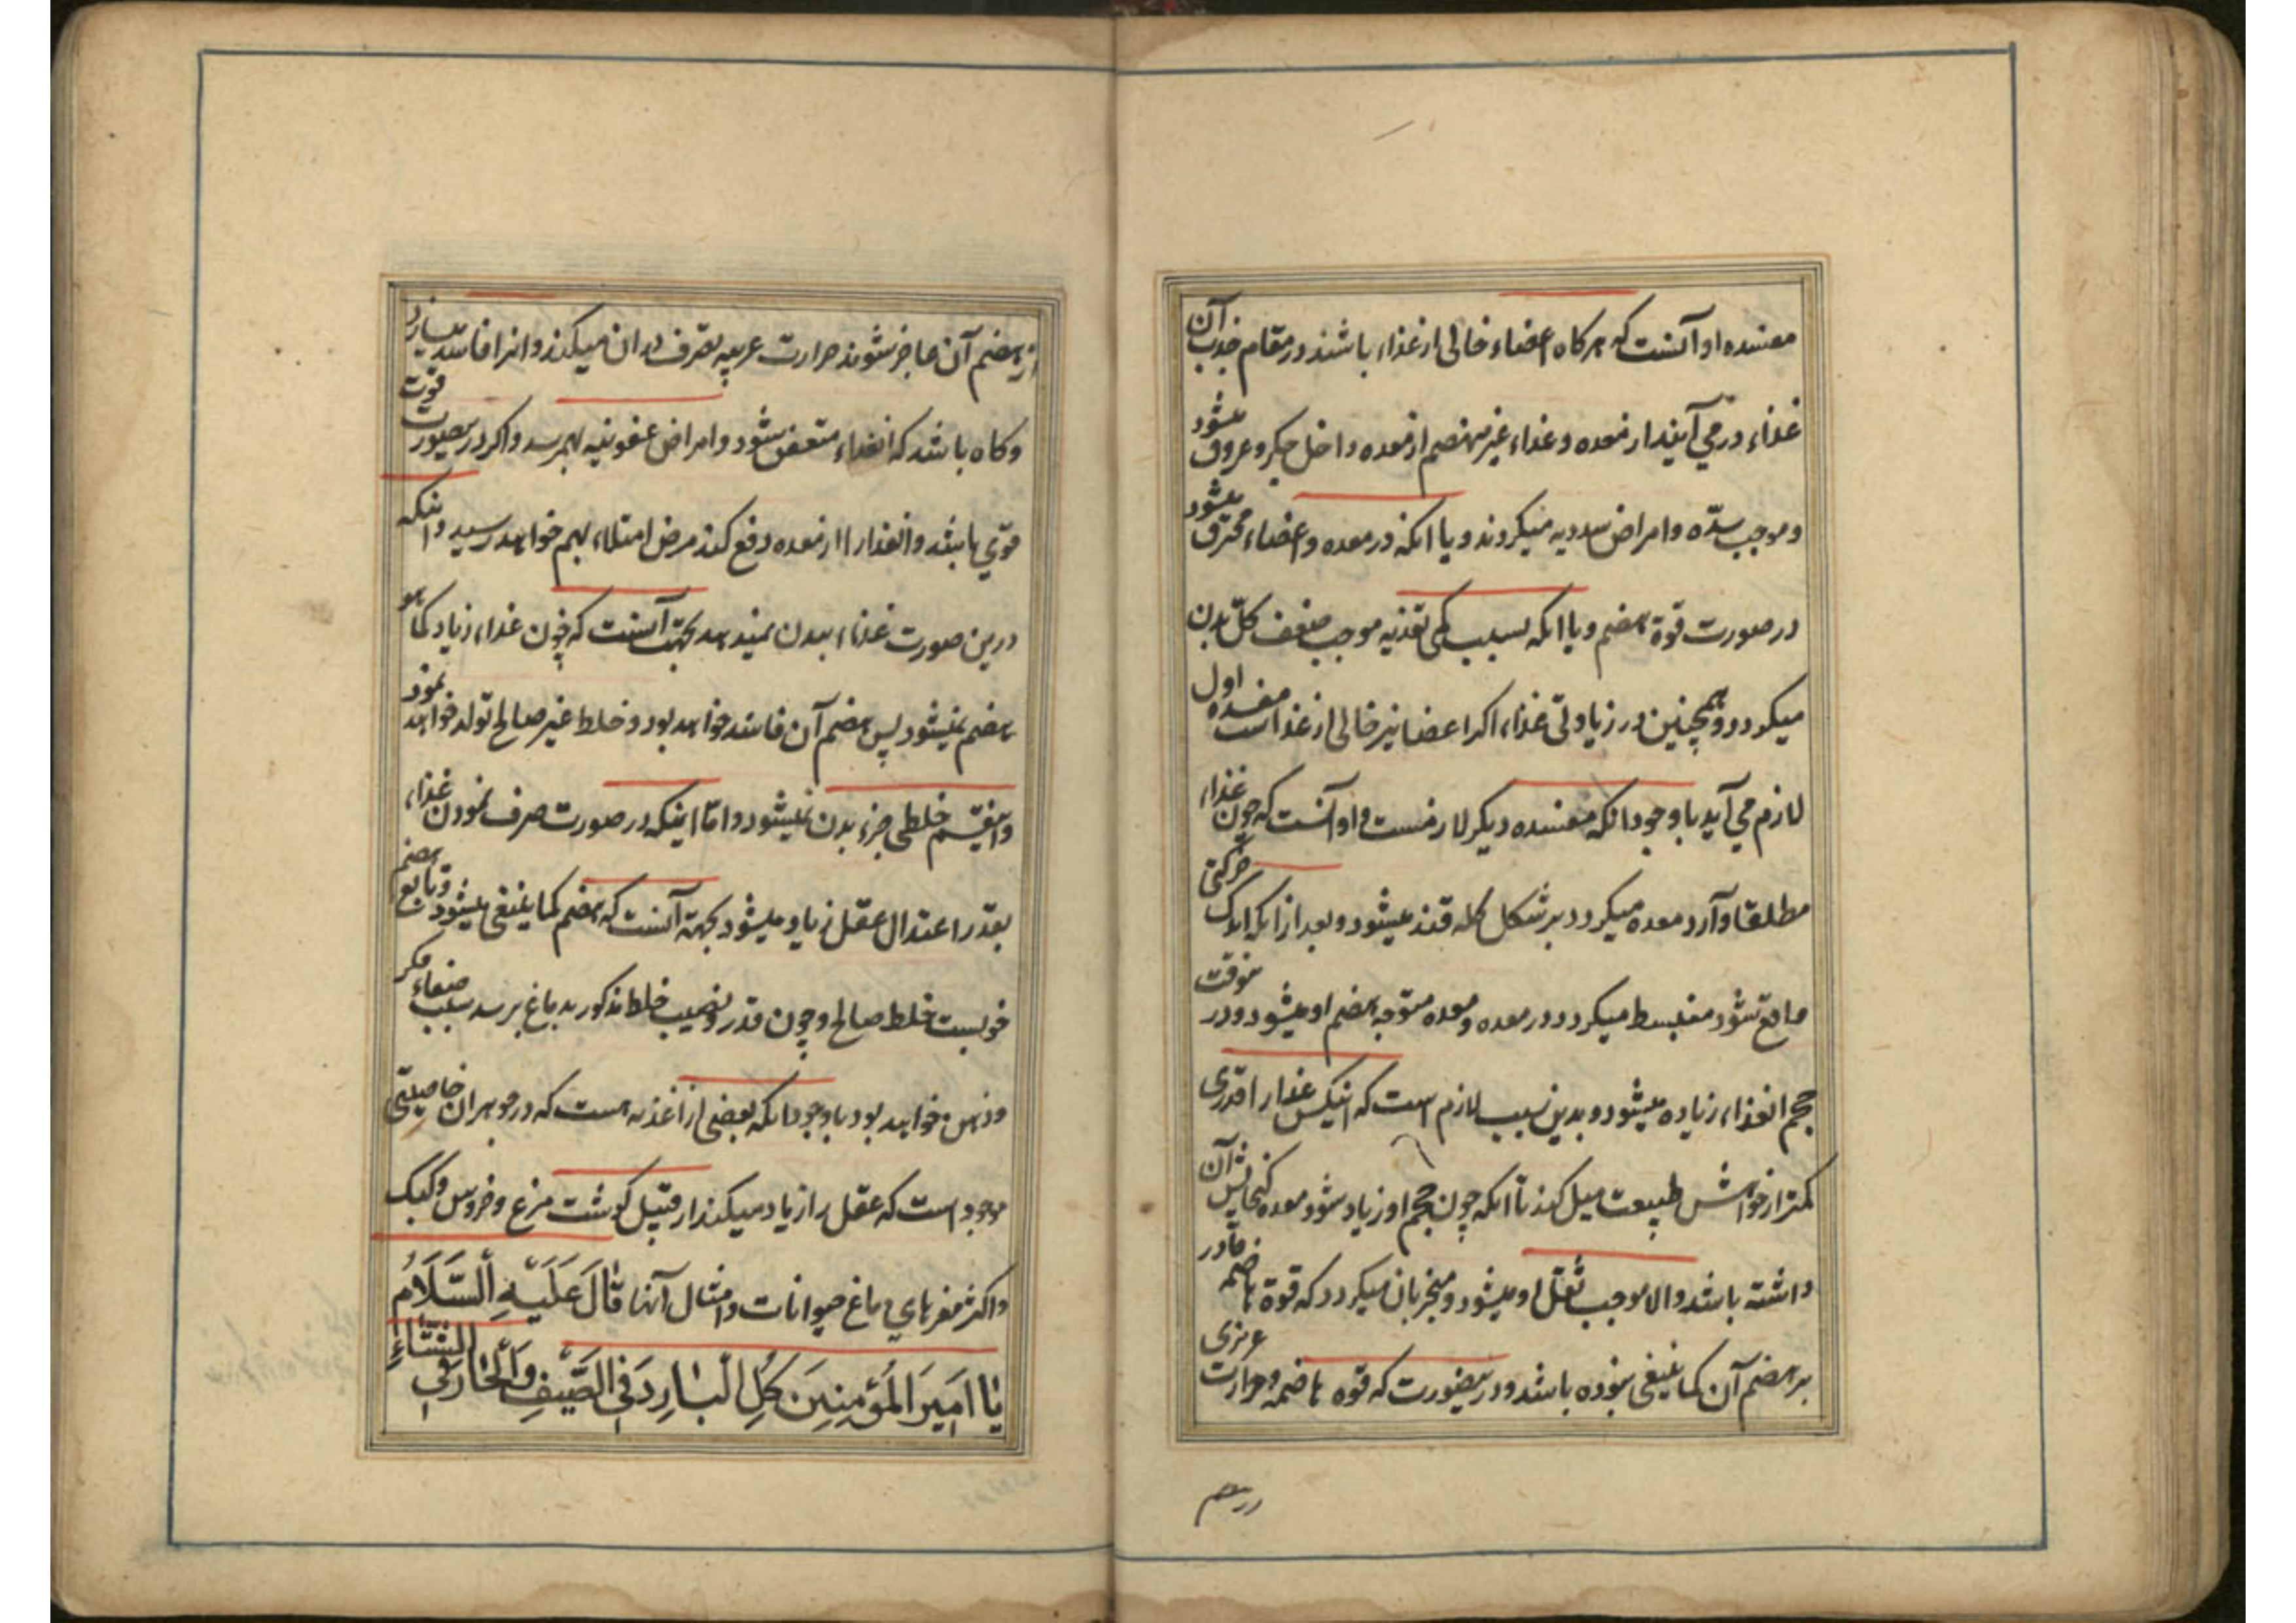 مفسده او آنست که هر کاه اعضاء خالی از غذاء باشند در مقام جذب آن
غذاء در می آیند از معده و غذاء غیر منهضم از معده داخل جکر و عروق میشود
و موجب سدّه و امراض سددیه میکردند و یا انکه در معده و اعضاء محترق میشود
در صورت قوة هضم و یا انکه بسبب کمی تغذیه موجب ضعف کلّ بدن
میکردد و همچنین در زیادتی غذاء اکر اعضا نیز خالی از غذا است مفسده اول
لازم می آید با وجود انکه مفسده دیکر لازمست و او آنست که چون غذاء
مطلقا وارد معده میکردد بر شکل کله قند میشود و بعد از انکه اندک حرکتی
واقع شود منبسط میکردد در معده و معده متوجه هضم او میشود و در ینوقت
حجم انغذاء زیاده میشود و بدین سبب لازم است که اینکس غذا را قدری
کمتر از خواهش طبیعت میل کند تا انکه چون حجم او زیاد شود معده کنجایش آن
داشته باشد والا موجب ثقل او میشود و منجر بان میکردد که قوة هاضمه قادر
بر هضم آن کما ینبغی نبوده باشد و در ینصورت که قوه هاضمه و حرارت غریزی
از هضم آن عاجز شوند حرارت غریبه تصرف دران میکند و انرا فاسد میسازد
و کاه باشد که انغذاء متعفن شود و امراض عفونیه بهمرسد و اکر در ینصورت قوت
قوّی باشد و انغذا را از معده دفع کند مرض امتلاء بهم خواهد رسید و اینکه
درین صورت غذاء ببدن نمیدهد بجهت آنست که چون غذاء زیاد کما هو
هضم نمیشود پس هضم آن فاسد خواهد بود و خلط غیر صالح تولد خواهد نمود
و اینقسم خلطی جزء بدن نمیشود و امّا اینکه در صورت صرف نمودن غذاء
بقدر اعتدال عقل زیاد میشود بجهة آنست که هضم کما ینبغی میشود و تابع هضم
خوبست خلط صالح و چون قدر و نصیب خلط مذکور بدماغ برسد سبب صفاء فکر
و ذهن خواهد بود با وجود انکه بعضی از اغذیه هست که در جوهر ان خاصیتی
موجود است که عقل را زیاد میکند از قبیل کوشت مرغ و خروس و کبک
و اکثر مغزهای دماغ حیوانات و امثال آنها قَالَ عَلَيْهِ السَّلَامُ
يَا امَيرَ المَؤُمِنِينَ كُلِ الْبَارِدَ فِى الصَّيْفِ وَالْحَارَّ فِى الشِّتَاءِ